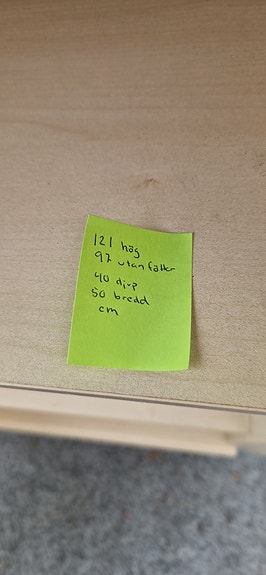 121 hög
97 utan fötter
40 djup
50 bredd
cm